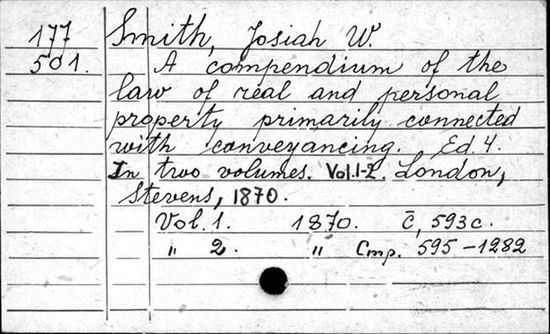 177 Smith, Josiah W.
501. A compendium of the
law of real and personal
property primarily connected
with conveyancing. Ed. 4.
In two volumes. Vol.1-2. London,
Stevens, 1870.
Vol. 1. 1870. c̄, 593 c.
" 2. " Стр. 595-1282